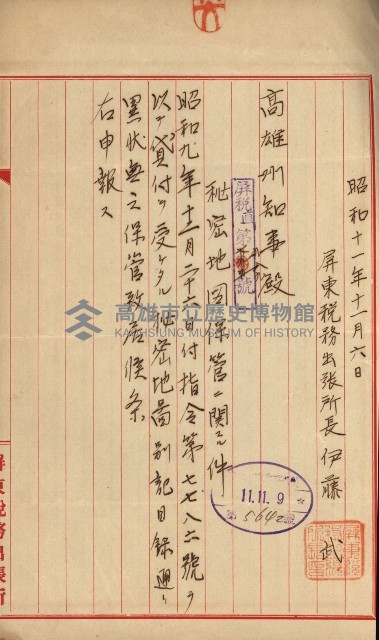 昭和十一年十一月六日
屏東税務出張所長 伊藤 武
高雄州知事殿
屏税直第 號
秘密地図保管ニ関スル件
昭和九年十二月二十六日付指令第七七八六號ヲ
以テ貸付ヲ受ケタル秘密地圖別記目録通リ
異状無之保管致居候条
右申報ス
11.11.9
第5642號
高雄市立歷史博物館
KAOHSIUNG MUSEUM OF HISTORY
屏東税務出張所